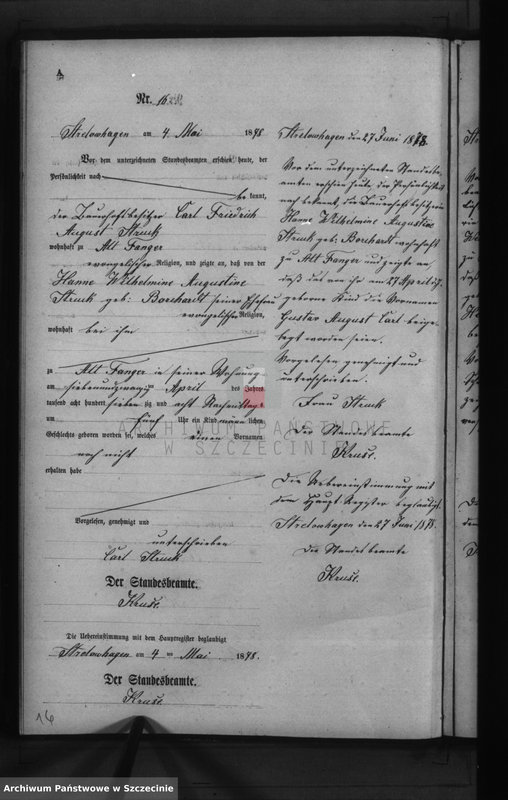 A
Nr. 16
Strelowhagen am 4 Mai 1878
Vor dem unterzeichneten Standesbeamten erschien heute, der
Persönlichkeit nach
be kannt,
der Bauerhofbesitzer Carl Friedrich
August Struck
wohnhaft zu Alt Fanger
evangelischer Religion, und zeigte an, daß von der
Hanne Wilhelmine Augustine
Struck geb: Borchardt seiner Ehefrau
evangelischer Religion,
wohnhaft bei ihm
zu Alt Fanger in seiner Wohnung
am siebenundzwanzigten April des Jahres
tausend acht hundert sieben zig und acht Nachmittags
um fünf Uhr ein Kind männ lichen
Geschlechts geboren worden sei, welches einen Vornamen
noch nicht
erhalten habe
Vorgelesen, genehmigt und
unterschrieben
Carl Struck
Der Standesbeamte.
Kruse.
Die Uebereinstimmung mit dem Hauptregister beglaubigt
Strelowhagen am 4 ten Mai 1878.
Der Standesbeamte.
Kruse.
16
Strelowhagen den 27 Juni 1878.
Vor dem unterzeichneten Standesbe-
amten erschien heute, der Persönlichkeit
nach bekannt, die Bauerhofbesitzerin
Hanne Wilhelmine Augustine
Struck geb: Borchardt wohnhaft
zu Alt Fanger und zeigte an
daß das von ihr am 27 April d. J.
geborene Kind die Vornamen
Gustav August Carl beige-
legt worden seien.
Vorgelesen genehmigt und
unterschrieben.
Frau Struck
Der Standesbeamte
Kruse.
Die Uebereinstimmung mit
dem Haupt Register beglaubigt.
Strelowhagen den 27 Juni 1878.
Der Standesbeamte
Kruse.
ARCHIWUM PAŃSTWOWE
W SZCZECINIE
Archiwum Państwowe w Szczecinie